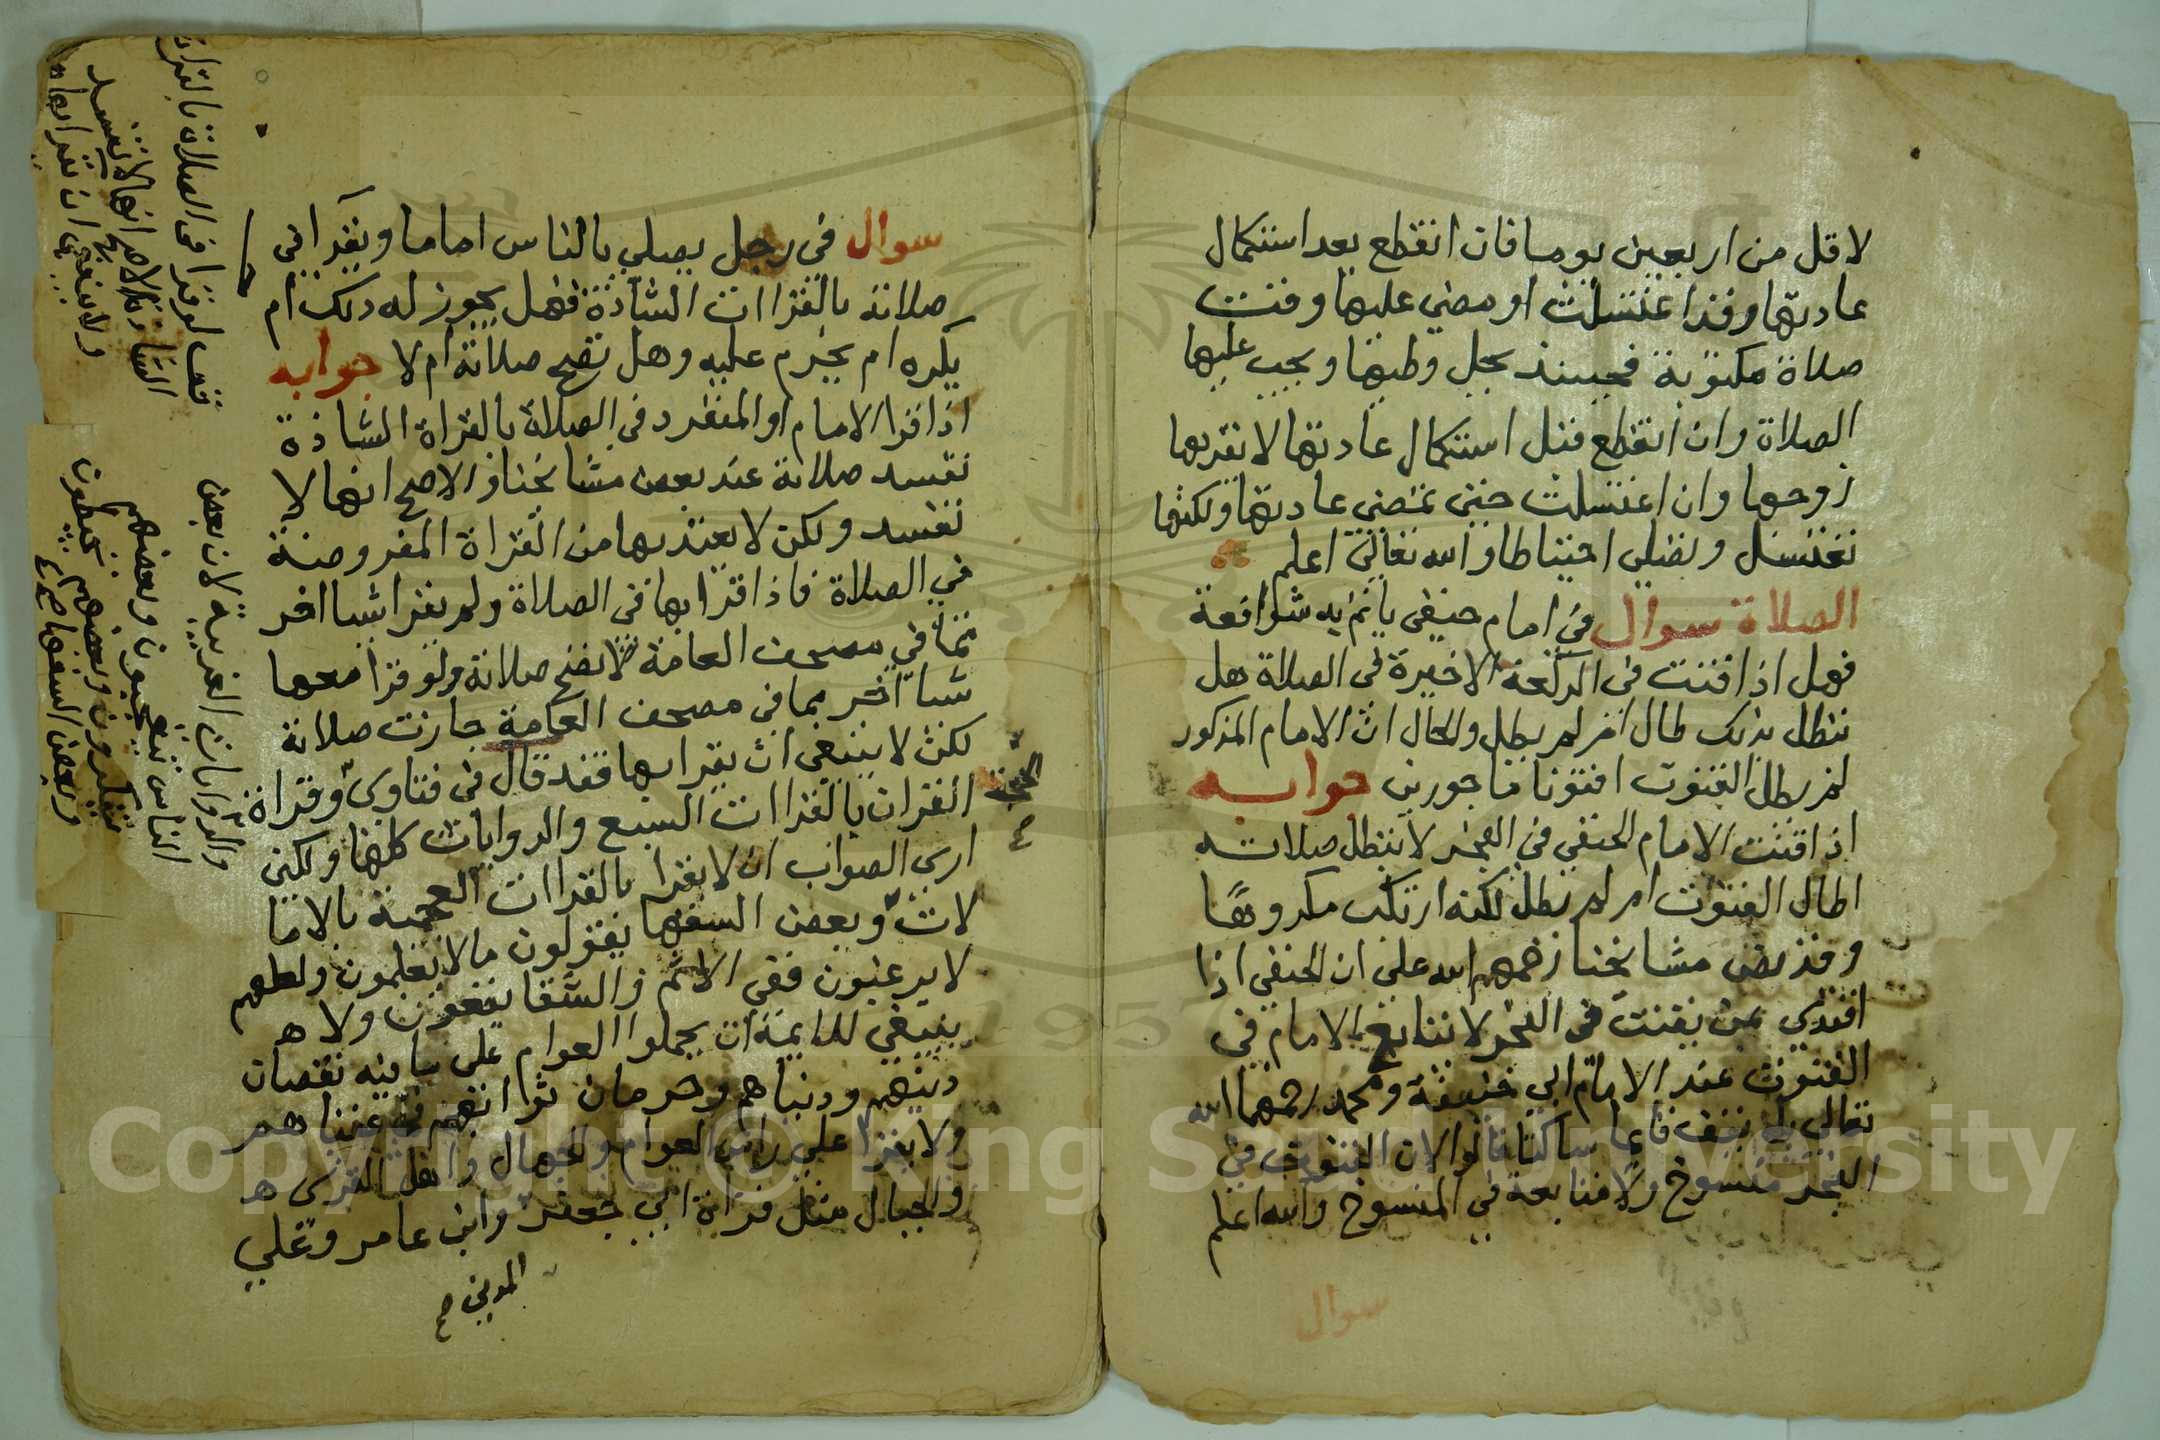 لاقل من اربعين يوما فان انقطع بعد استكمال
عادتها وقد اغتسلت او مضي عليها وقت
صلاة مكتوبة فحينئذ يحل وطيها ويجب عليها
الصلاة وان انقطع قبل استكمال عادتها لا يقربها
زوجها وان اغتسلت حتى تمضي عادتها ولكنها
تغتسل وتصلي احتياطا والله تعالى اعلم
الصلاة سوال في امام حنفي ياتم به شوافعة
فهل اذا قنت في الركعة الاخيرة في الصلاة هل
تبطل بذلك طال ام لم يطل والحال ان الامام المذكور
لم يطل القنوت افتونا ماجورين جوابه
اذا قنت الامام الحنفي في الفجر لا تبطل صلاته
اطال القنوت ام لم يطل لكنه ارتكب مكروها
وقد نص مشايخنا رحمهم الله على ان الحنفي اذا
اقتدي بمن يقنت في الفجر لا يتابع الامام في
القنوت عند الامام ابي حنيفة ومحمد رحمهما الله
تعالى بل يقف قايما ساكتا قالوا لان القنوت في
الفجر منسوخ ولا متابعة في المنسوخ والله اعلم
سوال
سوال في رجل يصلي بالناس اماما ويقرا في
صلاته بالقراات الشاذة فهل يجوز له ذلك ام
يكره ام يحرم عليه وهل تصح صلاته ام لا جوابه
اذا قرا الامام او المنفرد في الصلاة بالقراة الشاذة
تفسد صلاته عند بعض مشايخنا والاصح انها لا
تفسد ولكن لا يعتد بها من القراة المفروضة
في الصلاة فاذا قرا بها في الصلاة ولم يقرا شيا اخر
مما في مصحف العامة لا تصح صلاته ولو قرا معها
شيا اخر مما في مصحف العامة جازت صلاته
لكن لا ينبغي ان يقرا بها فقد قال في فتاوي وقراة
القران بالقراات السبع والروايات كلها ولكن
ارى الصواب ان لا يقرا بالقراات العجيبة بالاما
لات وبعض السفها يقولون ما لا يعلمون ولعلهم
لا يرغبون فقي الاثم والشقا يقعون ولا
ينبغي للايمة ان يحملوا العوام على ما فيه نقصان
دينهم ودنياهم وحرمان ثوابهم في عقباهم
ولا يقرا على راس العوام والجهال واهل القرى
والجبال مثل قراة ابي جعفر وابن عامر وعلي
المدني صح
الحجة
صح
فسا لو قرا في الصلاة بالقراة
الشاذة والاصح انها لا تفسد
ولا ينبغي ان يقرا بها
والروايات الغريبة لان بعض
الناس يتعجبون وبعضهم
يتفكرون وبعضهم يخطون
وبعض السفها صح